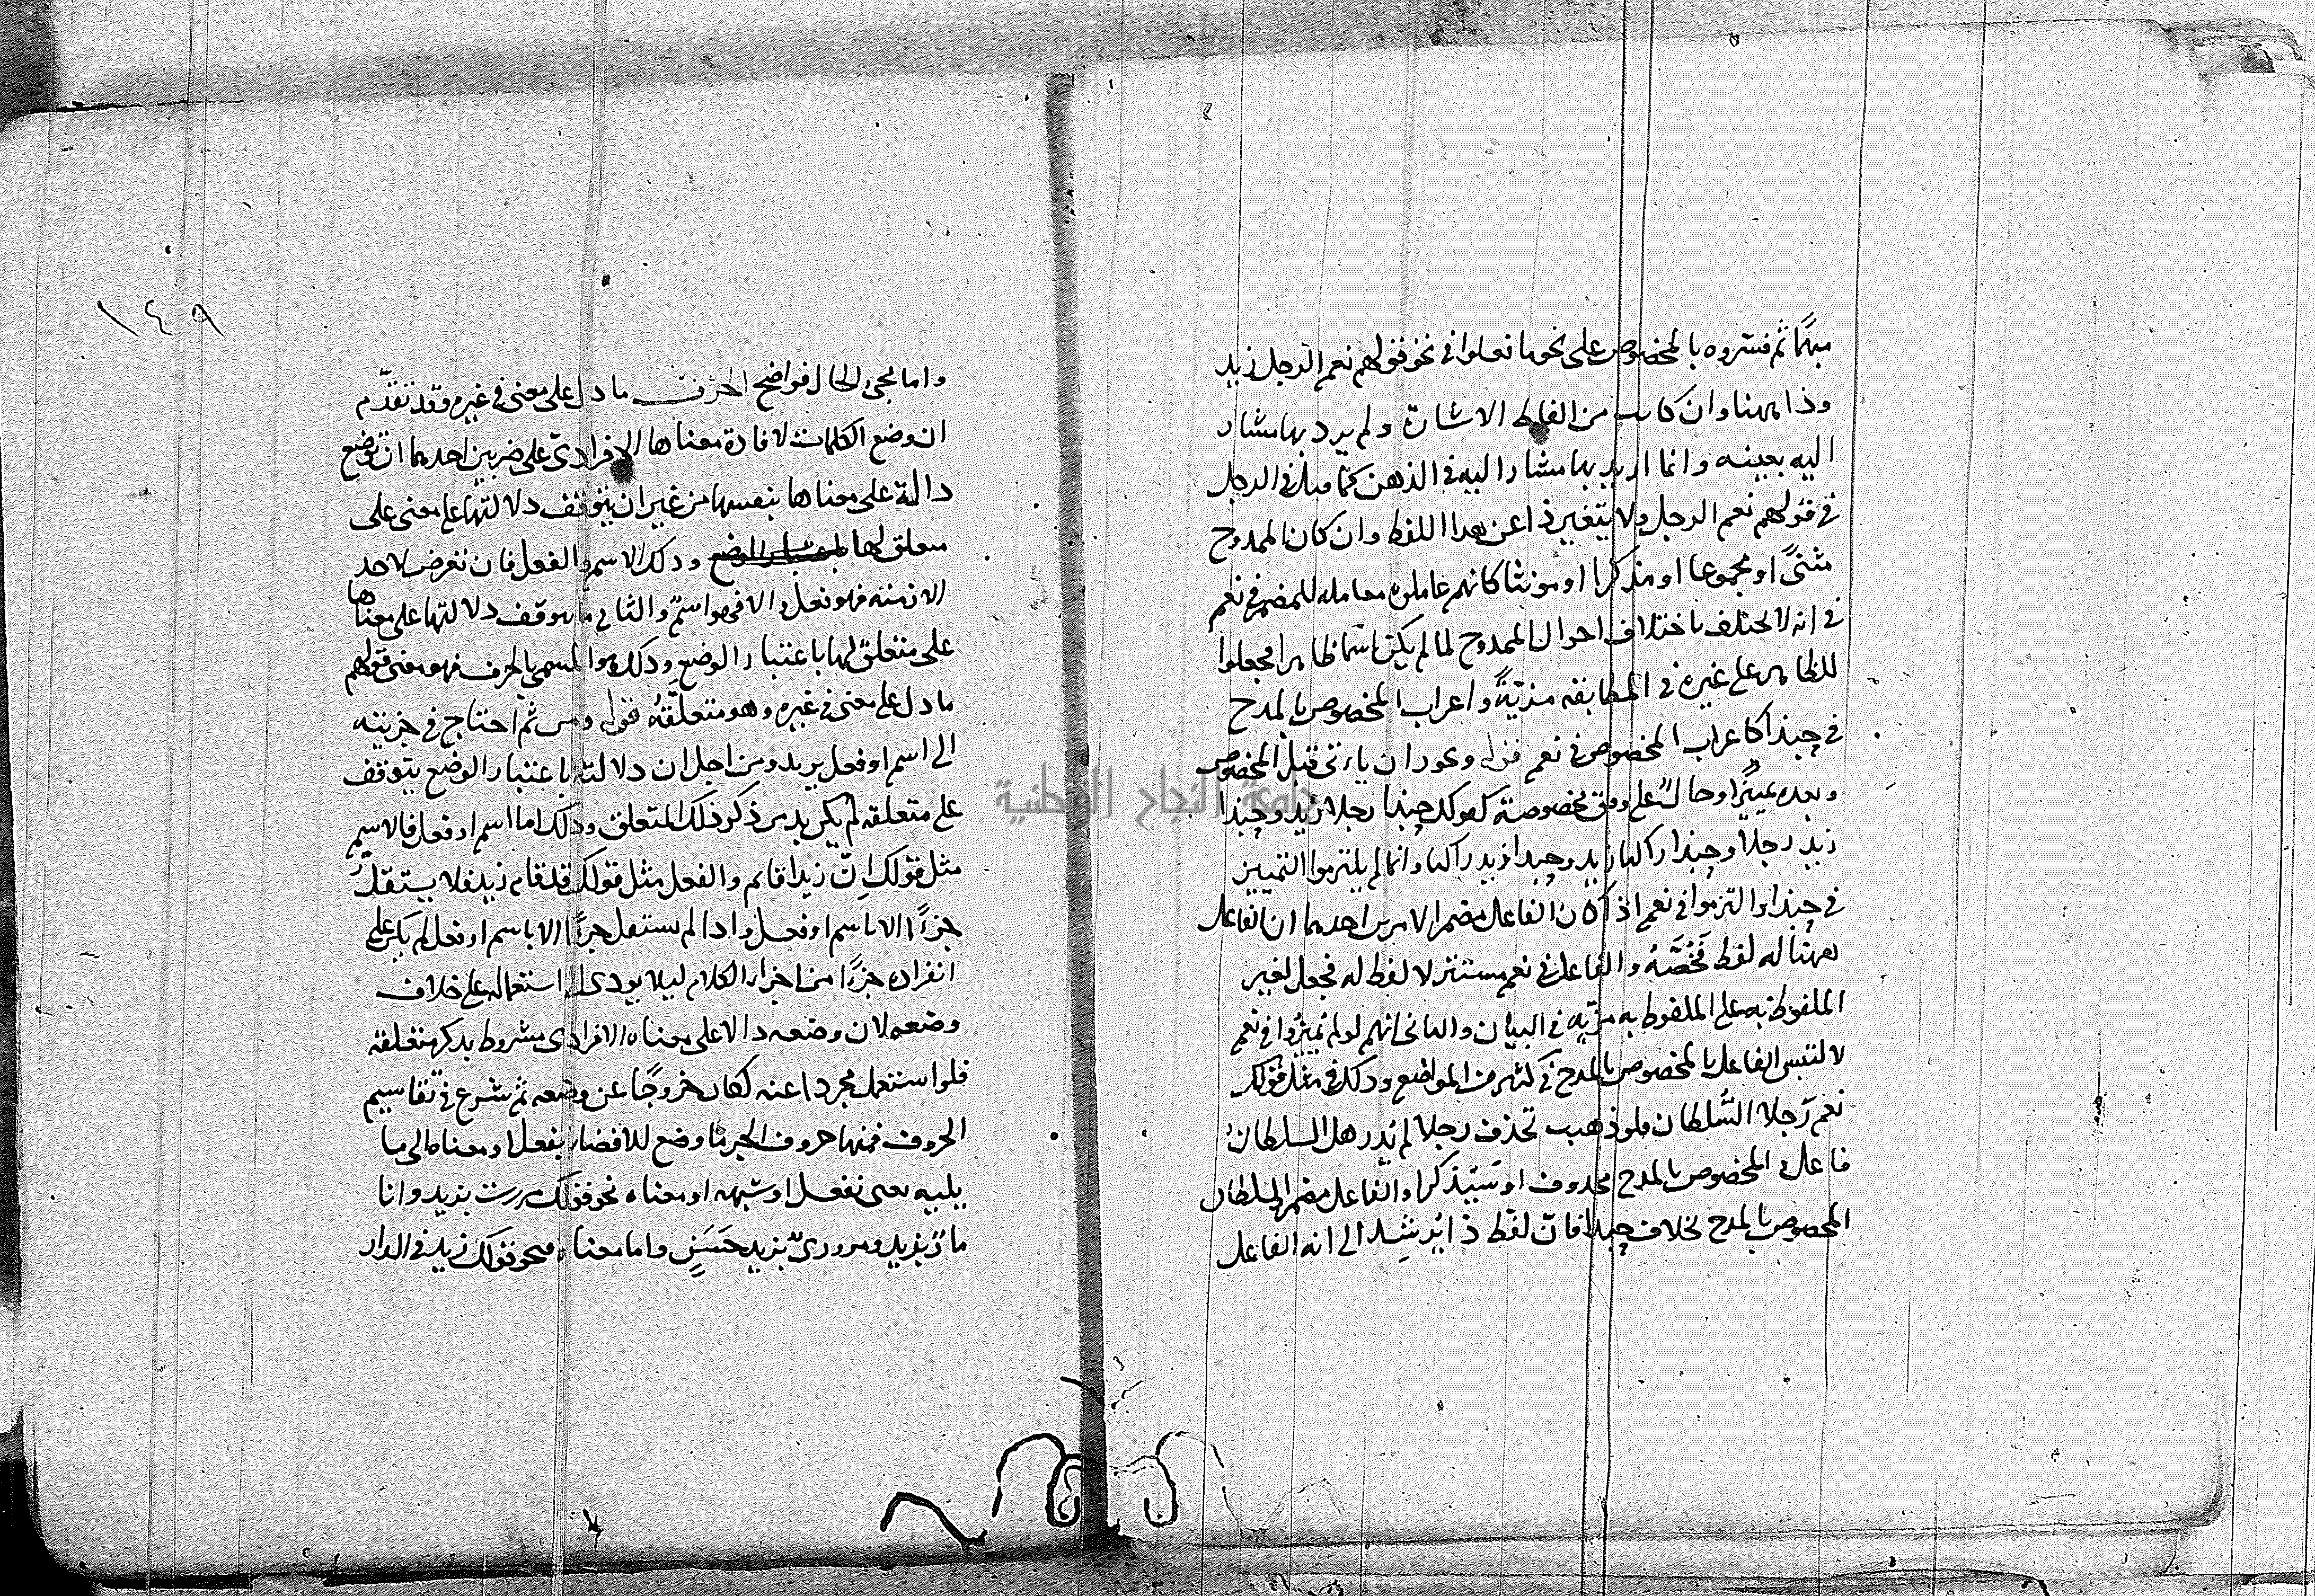 مبهمًا ثم فسّروه بالمخصوص على نحو ما فعلوا في نحو قولهم نعم الرجل زيد
وذا ههنا وان كانت من الفاظ الاشارة ولم يرد بها مشار
اليه بعينه وانما اريد بها مشارا اليه في الذهن كما قيل في الرجل
في قولهم نعم الرجل ولا يتغير ذا عن هذا اللفظ وان كان الممدوح
مثنًى او مجموعا او مذكرا او مونثا كانهم عاملوه معاملة المضمر في نعم
في انه لا يختلف باختلاف احوال الممدوح لما لم يكن اسما ظاهرا فجعلوا
للظاهر على غيره في المطابقة مزيّةً واعراب المخصوص بالمدح
في حبذا كاعراب المخصوص في نعم قوله ويجوز ان ياتي قبل المخصوص
وبعده تمييزًا او حالٌ على وفق مخصوصه كقولك حبذا رجلا زيد وحبذا
زيد رجلا وحبذا راكبا زيد وحبذا زيد راكبا وانما لم يلتزموا التمييز
في حبذا والتزموا في نعم اذا كان الفاعل مضمرا لامرين احدهما ان الفاعل
ههنا له لفظ يخصّه والفاعل في نعم مستتر لا لفظ له فجعل لغير
الملفوظ به على الملفوظ به مزيّة في البيان والثاني انهم لو لم يميّزوا في نعم
لالتبس الفاعل بالمخصوص بالمدح في كثير من المواضع وذلك في مثل قولك
نعم رجلا السُّلطان فلو ذهبت تحذف رجلا لم يدر هل السلطانُ
فاعل والمخصوص بالمدح محذوف او سيذكر او الفاعل مضمر والسلطان
المخصوص بالمدح بخلاف حبذا فانّ لفظ ذا يُرشد الى انه الفاعل
١٤٩
واما مجئ الحال فواضح الحرف ما دل على معنى في غيره وقد تقدّم
ان وضع الكلمات لافادة معناها الافرادي على ضربين احدهما ان توضع
دالة على معناها بنفسها من غير ان يتوقف دلالتها على معنى على
متعلق لها باعتبار الوضع وذلك الاسم والفعل فان تعرض لاحد
الازمنة فهو فعل والا فهو اسم والثاني ما يتوقف دلالتها على معناها
على متعلق لها باعتبار الوضع وذلك هو المسمى بالحرف فهو معنى قولهم
ما دل على معنى في غيره وهو متعلّقهُ قوله ومن ثم احتاج في جزئيته
الى اسم او فعل يريد ومن اجل ان دلالته باعتبار الوضع يتوقف
على متعلقه لم يكن بد من ذكر ذلك المتعلق وذلك اما اسم او فعل فالاسم
مثل قولك انّ زيدا قائم والفعل مثل قولك قد قام زيد فلا يستقلّ
جزءًا الا باسم او فعل واذا لم يستقل جزءًا الا باسم او فعل لم يكن على
انفراده جزءًا من اجزاء الكلام ليلا يودي الى استعماله على خلاف
وضعه لان وضعه دالا على معناه الافرادي مشروط بذكر متعلقه
فلو استعمل مجردا عنه لكان خروجًا عن وضعه ثم شرع في تقاسيم
الحروف فمنها حروف الجر ما وضع للافضاء بفعل او معناه الى ما
يليه يعني بفعل او شبهه او معناه نحو قولك مررت بزيد وانا
مارّ بزيد ومروري بزيد حَسَنٌ واما معناه فنحو قولك زيد في الدار
جامعة النجاح الوطنية